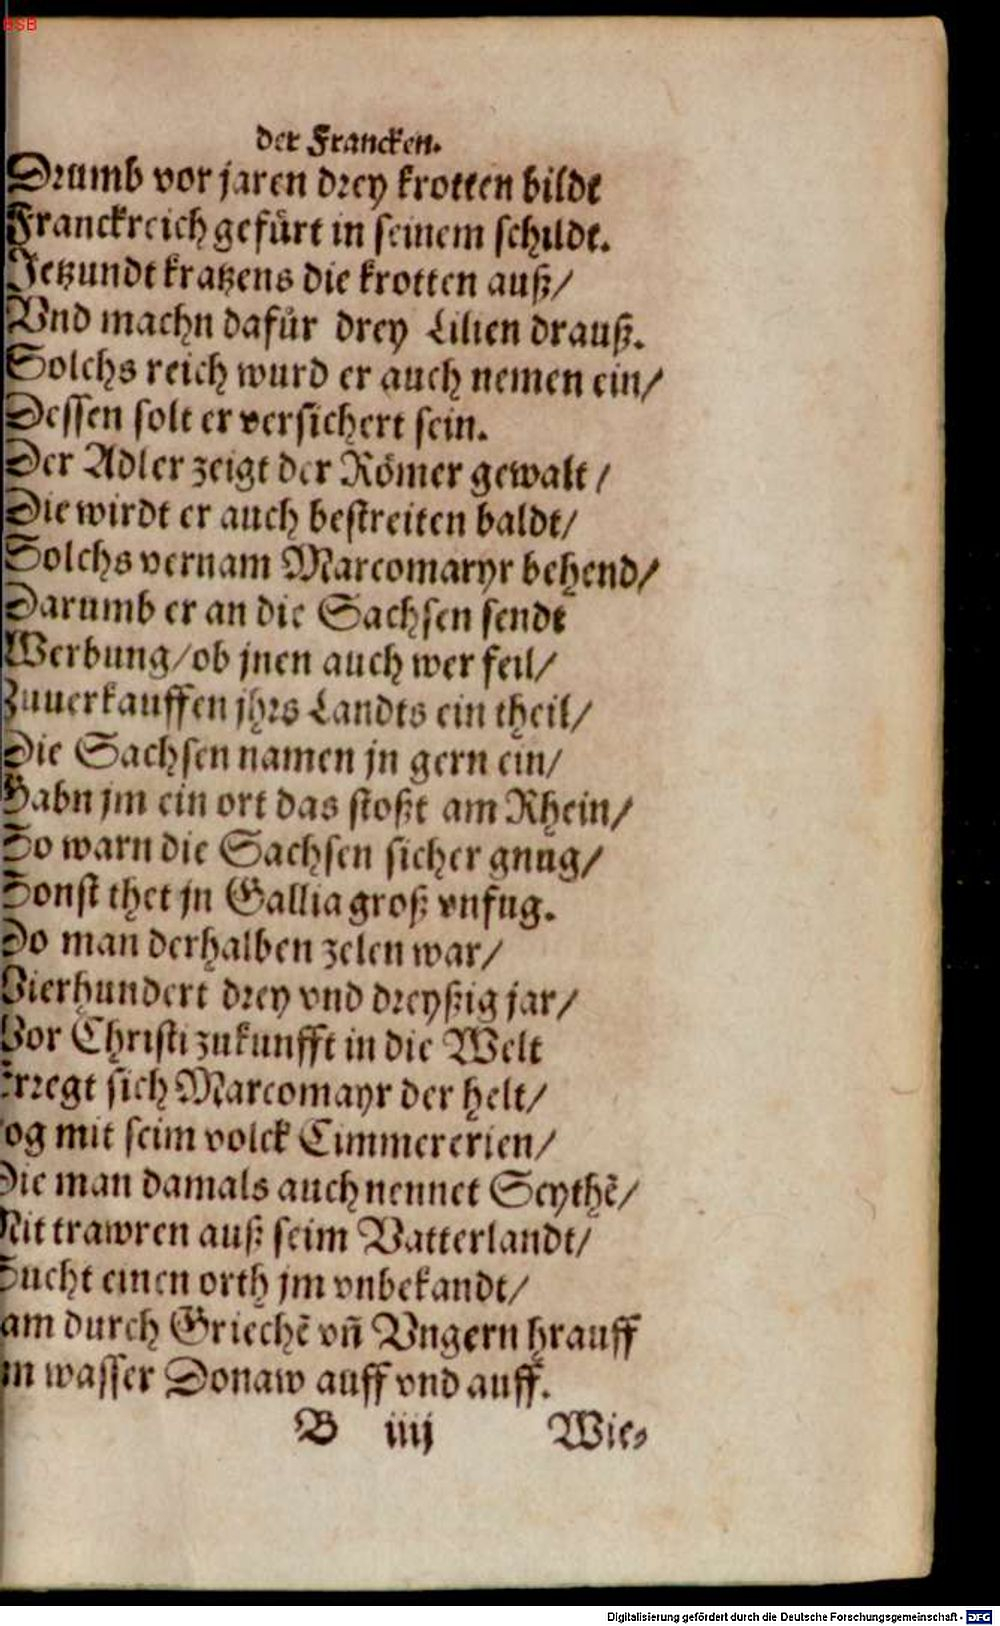 BSB
der Francken.
Drumb vor jaren drey krotten bildt
Franckreich gefürt in seinem schildt.
Jetzundt kratzens die krotten auß/
Vnd machn dafür drey Lilien drauß.
Solchs reich wurd er auch nemen ein/
Dessen solt er versichert sein.
Der Adler zeigt der Römer gewalt/
Die wirdt er auch bestreiten baldt/
Solchs vernam Marcomaryr behend/
Darumb er an die Sachsen sendt
Werbung/ob jnen auch wer feil/
Zuuerkauffen jhrs Landts ein theil/
Die Sachsen namen jn gern ein/
Gabn jm ein ort das stoßt am Rhein/
So warn die Sachsen sicher gnug/
Sonst thet jn Gallia groß vnfug.
Do man derhalben zelen war/
Vierhundert drey vnd dreyßig jar/
Vor Christi zukunfft in die Welt
Erregt sich Marcomayr der helt/
og mit seim volck Cimmererien/
Die man damals auch nennet Scythẽ/
Mit trawren auß seim Vatterlandt/
Sucht einen orth jm vnbekandt/
am durch Griechẽ vñ Vngern hrauff
m wasser Donaw auff vnd auff.
B iiij Wie-
Digitalisierung gefördert durch die Deutsche Forschungsgemeinschaft - DFG